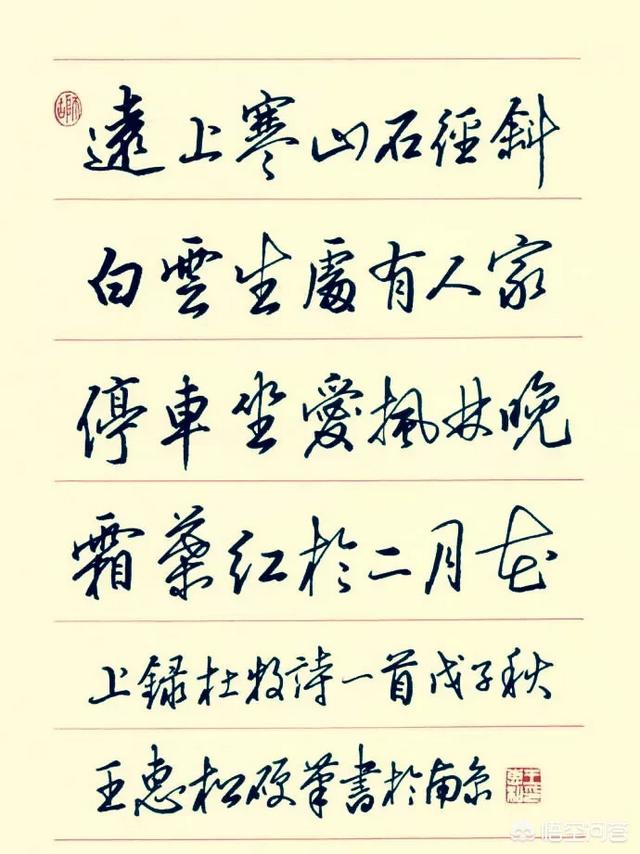 遠上寒山石徑斜
白雲生處有人家
停車坐愛楓林晚
霜葉紅於二月花
上錄杜牧詩一首戊子秋
王惠松硬筆書於南京
悟空问答